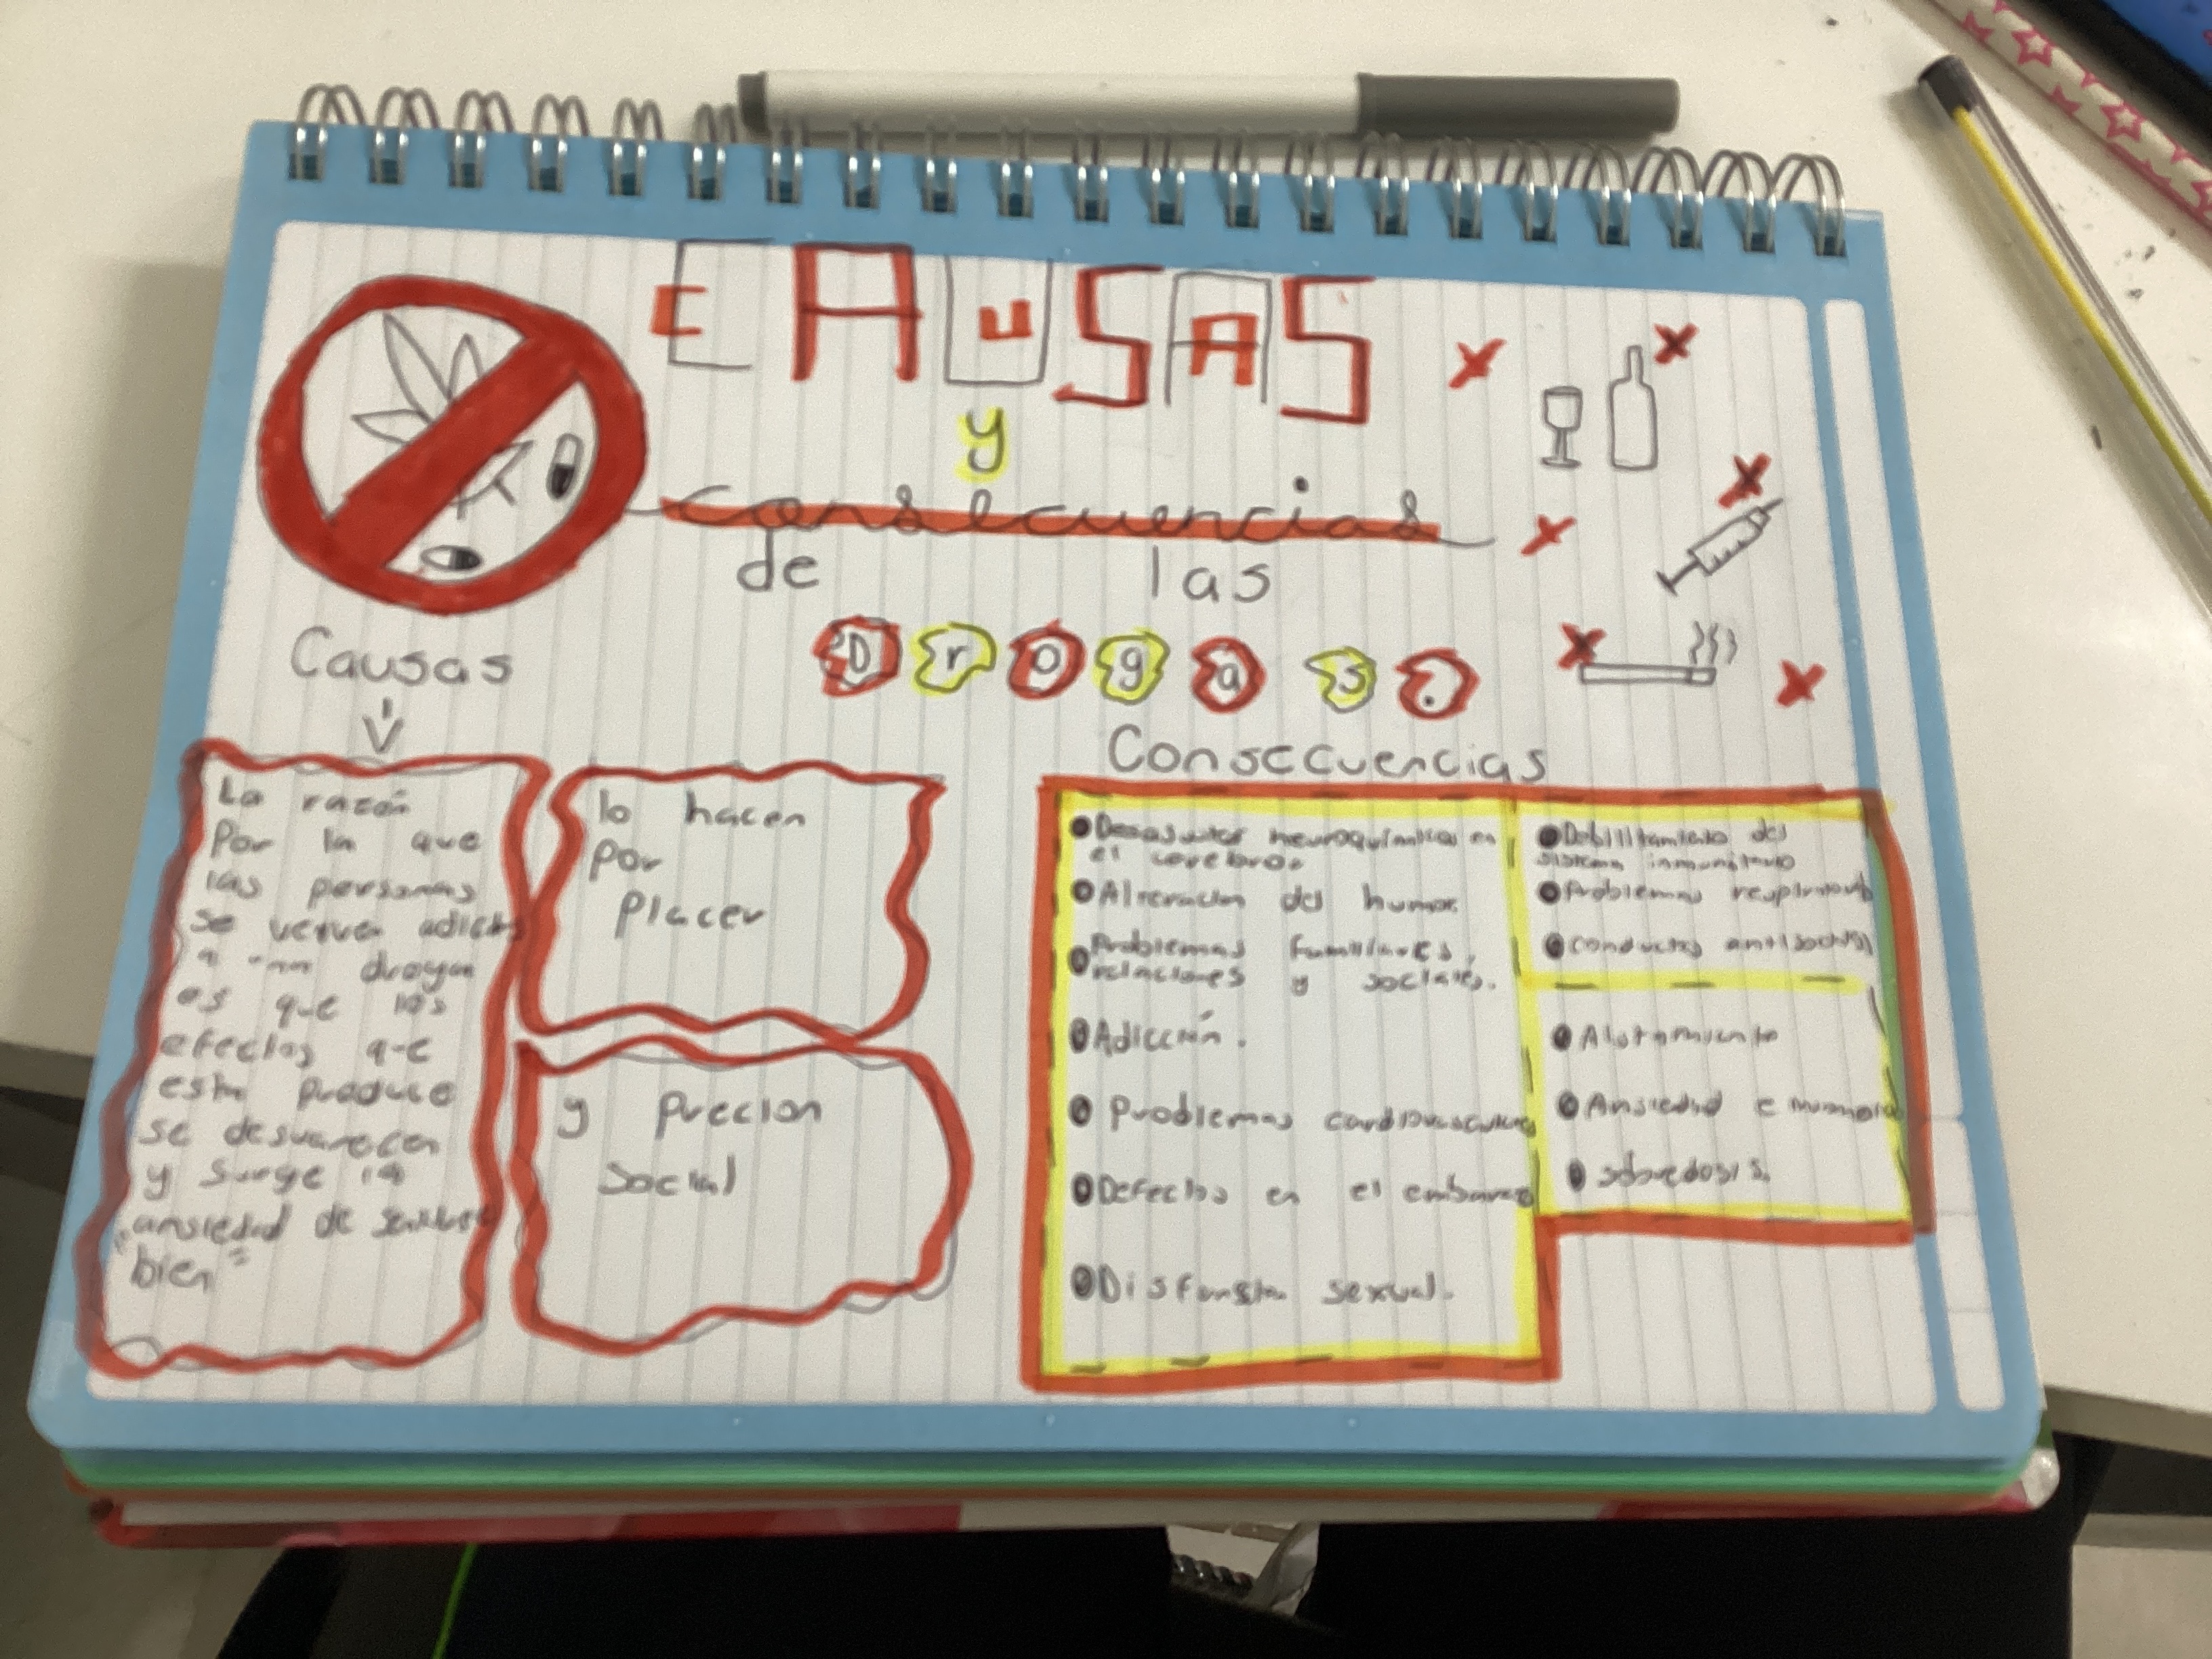 CAUSAS
y
consecuencias
de las
Drogas.
Causas
La razón
Por la que
las personas
se verven adictas
a drogas
es que los
efectos que
esta produce
se desvanecen
y surge la
"ansiedad de sentirse
bien"
lo hacen
por
Placer
y precion
social
Consecuencias
Desajustes neuroquímicos en
el cerebro.
Alteracion del humor
Problemas familiares,
relaciones y sociales.
Adicción.
Problemas cardiovasculares
Defectos en el embarazo
Disfunsion sexual.
Debilitamiento del
sistema inmunitario
Problemas respiratorios
conductas antisociales
Aislamiento
Ansiedad e insomnio
sobredosis.